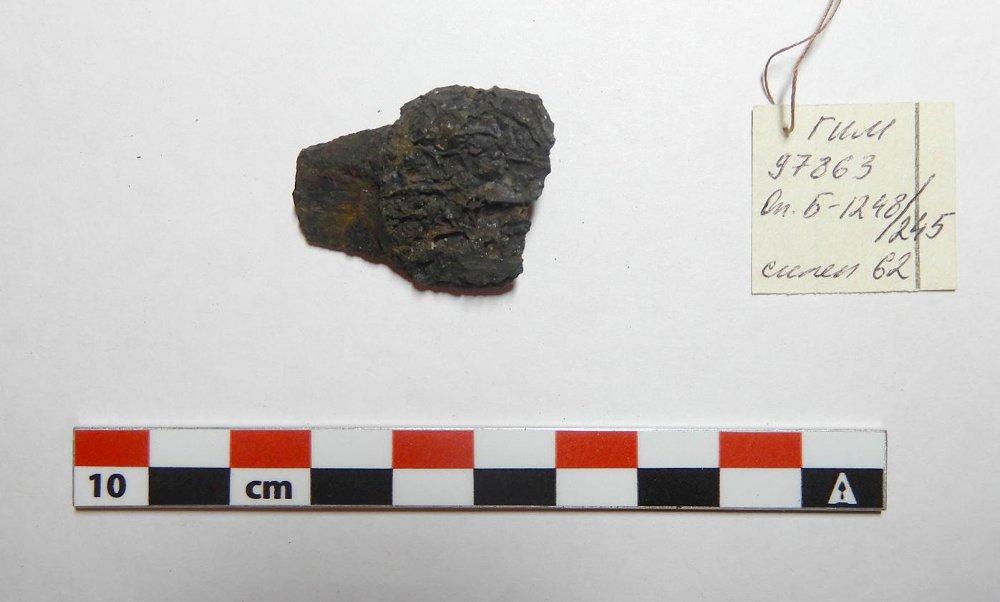 ГИМ
97863
Оп. Б-1248/
/245
62
10 cm